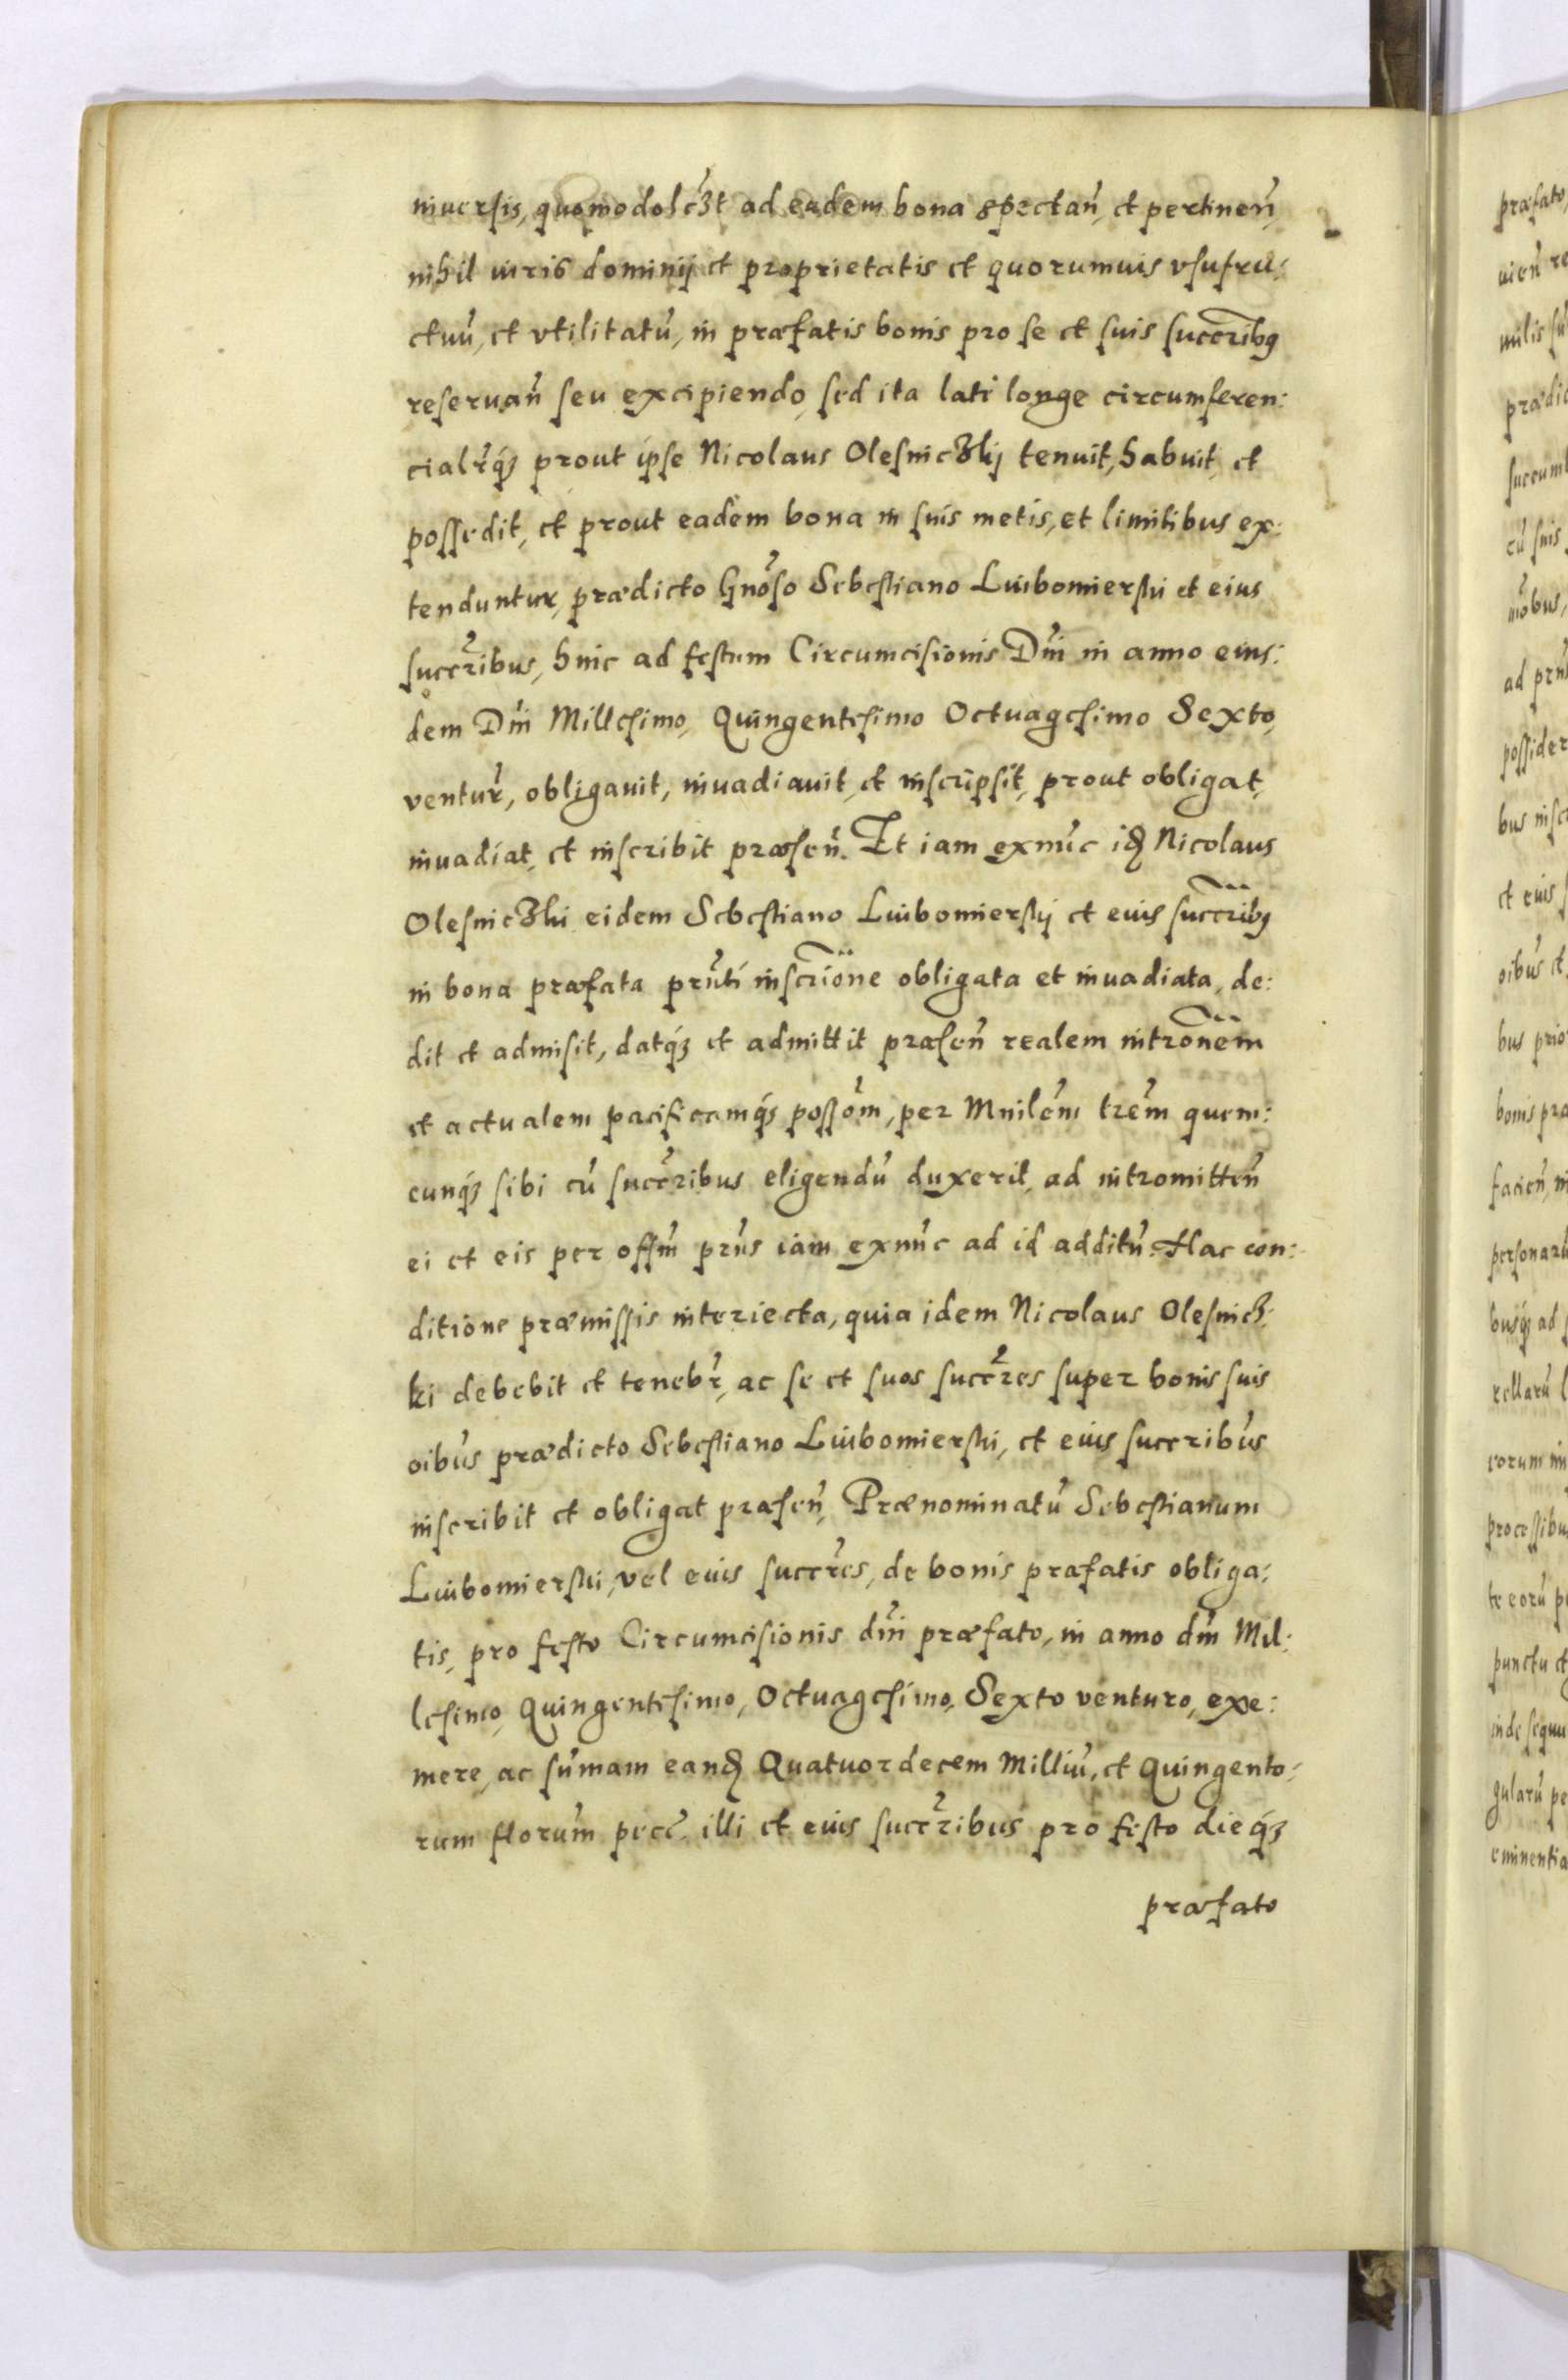 niuersis, quomodolẽʒt ad eadem bona spectan̄, et pertinen̄,
nihil iuris dominij et proprietatis et quorumuis vsufru:
ctuū, et vtilitatū, in præfatis bonis pro se et suis succr̄ibꝫ
reseruan̄ seu excipiendo, sed ita late longe circumferen:
cialr̄qꝫ prout ipse Nicolaus Olesniczkij tenuit, habuit, et
possedit, et prout eadem bona in suis metis, et limitibus ex:
tenduntur, prædicto Gnōso Sebestiano Luibomierski et eius
succr̄ibus, hinc ad festum Circumcisionis Dnī in anno eius:
dem Dnī Millesimo, Quingentesimo Octuagesimo Sexto,
ventur̄, obligauit, inuadiauit, et inscripsit, prout obligat,
inuadiat, et inscribit præsen̄. Et iam exnūc idꝫ Nicolaus
Olesniczki eidem Sebestiano Luibomierskij et eius succr̄ibꝫ
in bona præfata prn̄ti inscrīone obligata et inuadiata, de:
dit et admisit, datqꝫ et admittit præsen̄ realem intrōnem
et actualem pacificamqꝫ possōm, per Mnīlem trēm quem:
cunqꝫ sibi cū succr̄ibus eligendū duxerit, ad intromitten̄
ei et eis per offm̄ prn̄s iam exnūc ad id additū. Hac con:
ditione præmissis interiecta, quia idem Nicolaus Olesnicz:
ki debebit et tenebr̄, ac se et suos succr̄es super bonis suis
oībus prædicto Sebestiano Luibomierski, et eius succribūs
inscribit et obligat præsen̄, Prænominatū Sebestianum
Luibomierski, vel eius succr̄es, de bonis præfatis obliga:
tis, pro festo Circumcisionis dnī præfato, in anno dnī Mil:
lesimo, Quingentesimo, Octuagesimo, Sexto venturo, exe:
mere, ac sūmam eandꝫ Quatuordecem Milliū, et Quingento:
rum florūm pecc̄ illi et eius succr̄ibus pro festo dieqꝫ
præfato